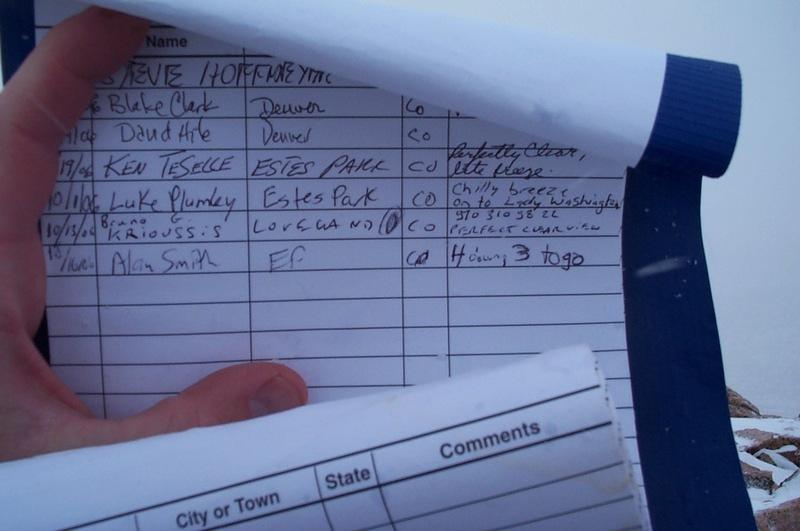 Name
STEVE HOFFMEYER
Blake Clark Denver CO
/06 David Denver CO
19/06 KEN TESELLE ESTES PARK CO Perfectly Clear, lite breeze.
10/1/06 Luke Plumley Estes Park CO Chilly breeze on to Lady Washington
10/15/06 Bruno G. KRIOUSSIS LOVELAND CO 970 310 9822 PERFECT CLEAR VIEW
10/16/06 Alan Smith EP CO 4 down, 3 to go
City or Town State Comments